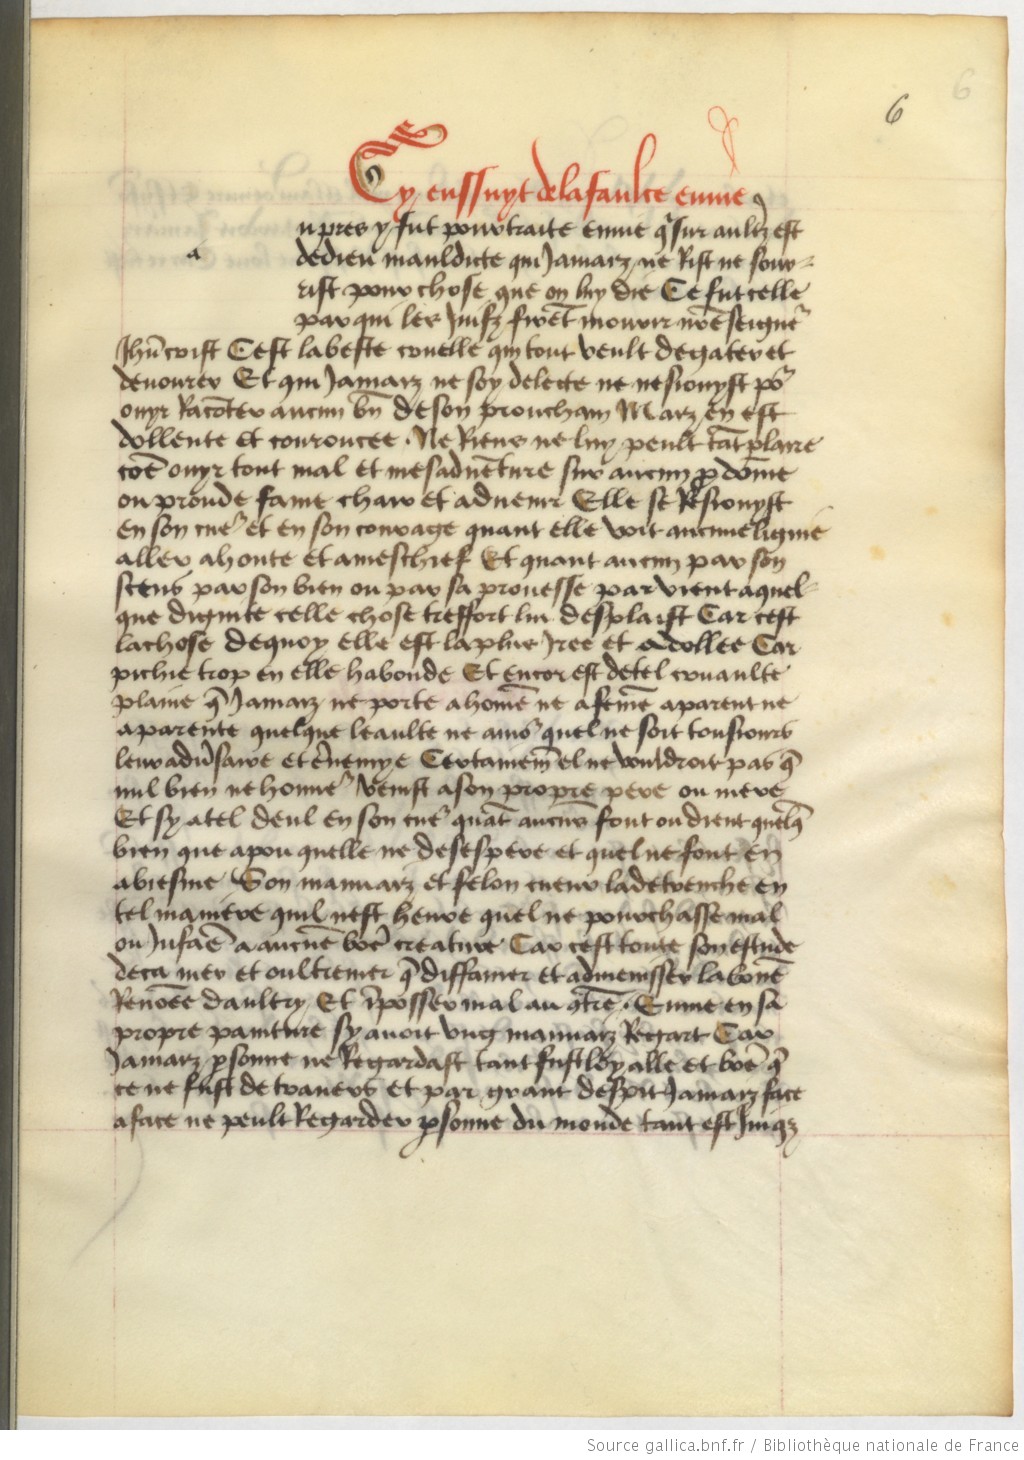 6
Cy enssuyt de la faulce envie
a
upres y fut pourtraite envie q̃ sur aultz est
de dieu mauldicte qui Jamarz ne Rist ne sour-
rist pour chose que on luy die Ce fut celle
par qui les Juifz firẽt mourir nr̃e seigne'
Jhũcrist Cest la beste cruelle qui tout veult degater et
devourer Et qui Jamarz ne soy delecte ne ne siouyst po'
ouyr Racõter aucun bñ de son prouchain Marz en est
dollente et couroucee . Ne Riens ne luy peult tãt plaire
cõe ouyr tout mal et mesadvẽture sur aucun p̱dõme
ou proude fame chear et advenir Elle se Resiouyst
en son cue' et en son courage quant elle voit aucune lignie
aller a honte et a meschief Et quant aucun par son
scens par son bien ou par sa prouesse parvient a quel-
que dignite celle chose tresfort lui desplaist Car cest
la chose de quoy elle est la plus Iree et adollee Car
pichie trop en elle habonde Et encor est de tel cruaulte
plaine q̃ Jamarz ne porte a home ne a feme aparent ne
aparente quelque leaulte ne amo' quel ne soit tousiours
leur adũsaire et ẽnemye Certainemẽ el ne vouldroit pas q̃
nul bien ne honne' venist a son propre pere ou mere
Et sy a tel deul en son cue' quãt aucuns font ou dient quelq̃
bien que a pou quelle ne desespere et quel ne font en
abiesme Son mauvarz et felon cueur la detrenche en
tel maniere quil nest heure quel ne pourchasse mal
ou Jnfãe a aucune bõe creature Car cest toute son estude
deca mer et oultremer q̃ diffamer et admenisser la bõne
Renõee daultry Et ꝑposser mal au 9tre . Envie en sa
propre painture sy avoit ung mauvarz Regart Car
Jamarz p̱sonne ne Regardast tant fust loyalle et bõe q̃
ce ne fust de travers et par grant despit Jamarz face
a face ne peult Regarder p̱sonne du monde tant est Juiqz
Source gallica.bnf.fr / Bibliothèque nationale de France